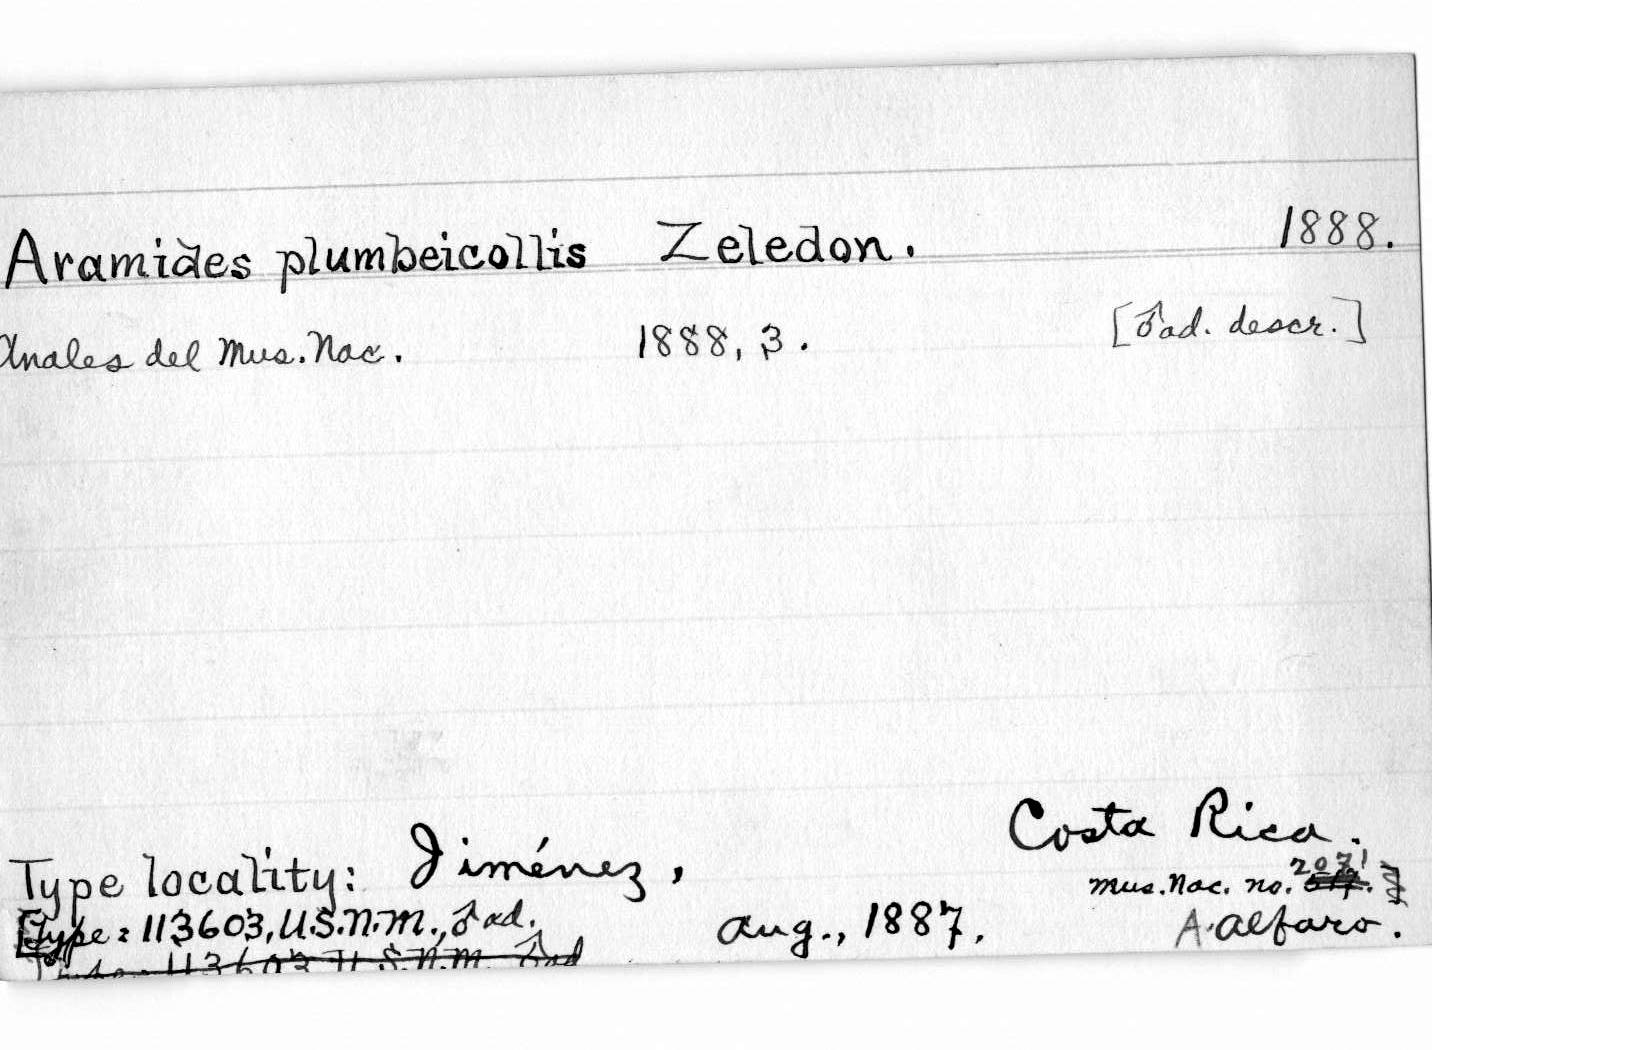 Aramides plumbeicollis Zeledon. 1888.
Anales del Mus. Nac. 1888, 3. [♂ ad. descr.]
Costa Rica.
Type locality: Jiménez,
Mus. Nac. no. 2071
[Type: 113603, U.S.N.M., ♂ ad. Aug., 1887, A. Alfaro.
Type: 113603 U.S.N.M. ♂ ad